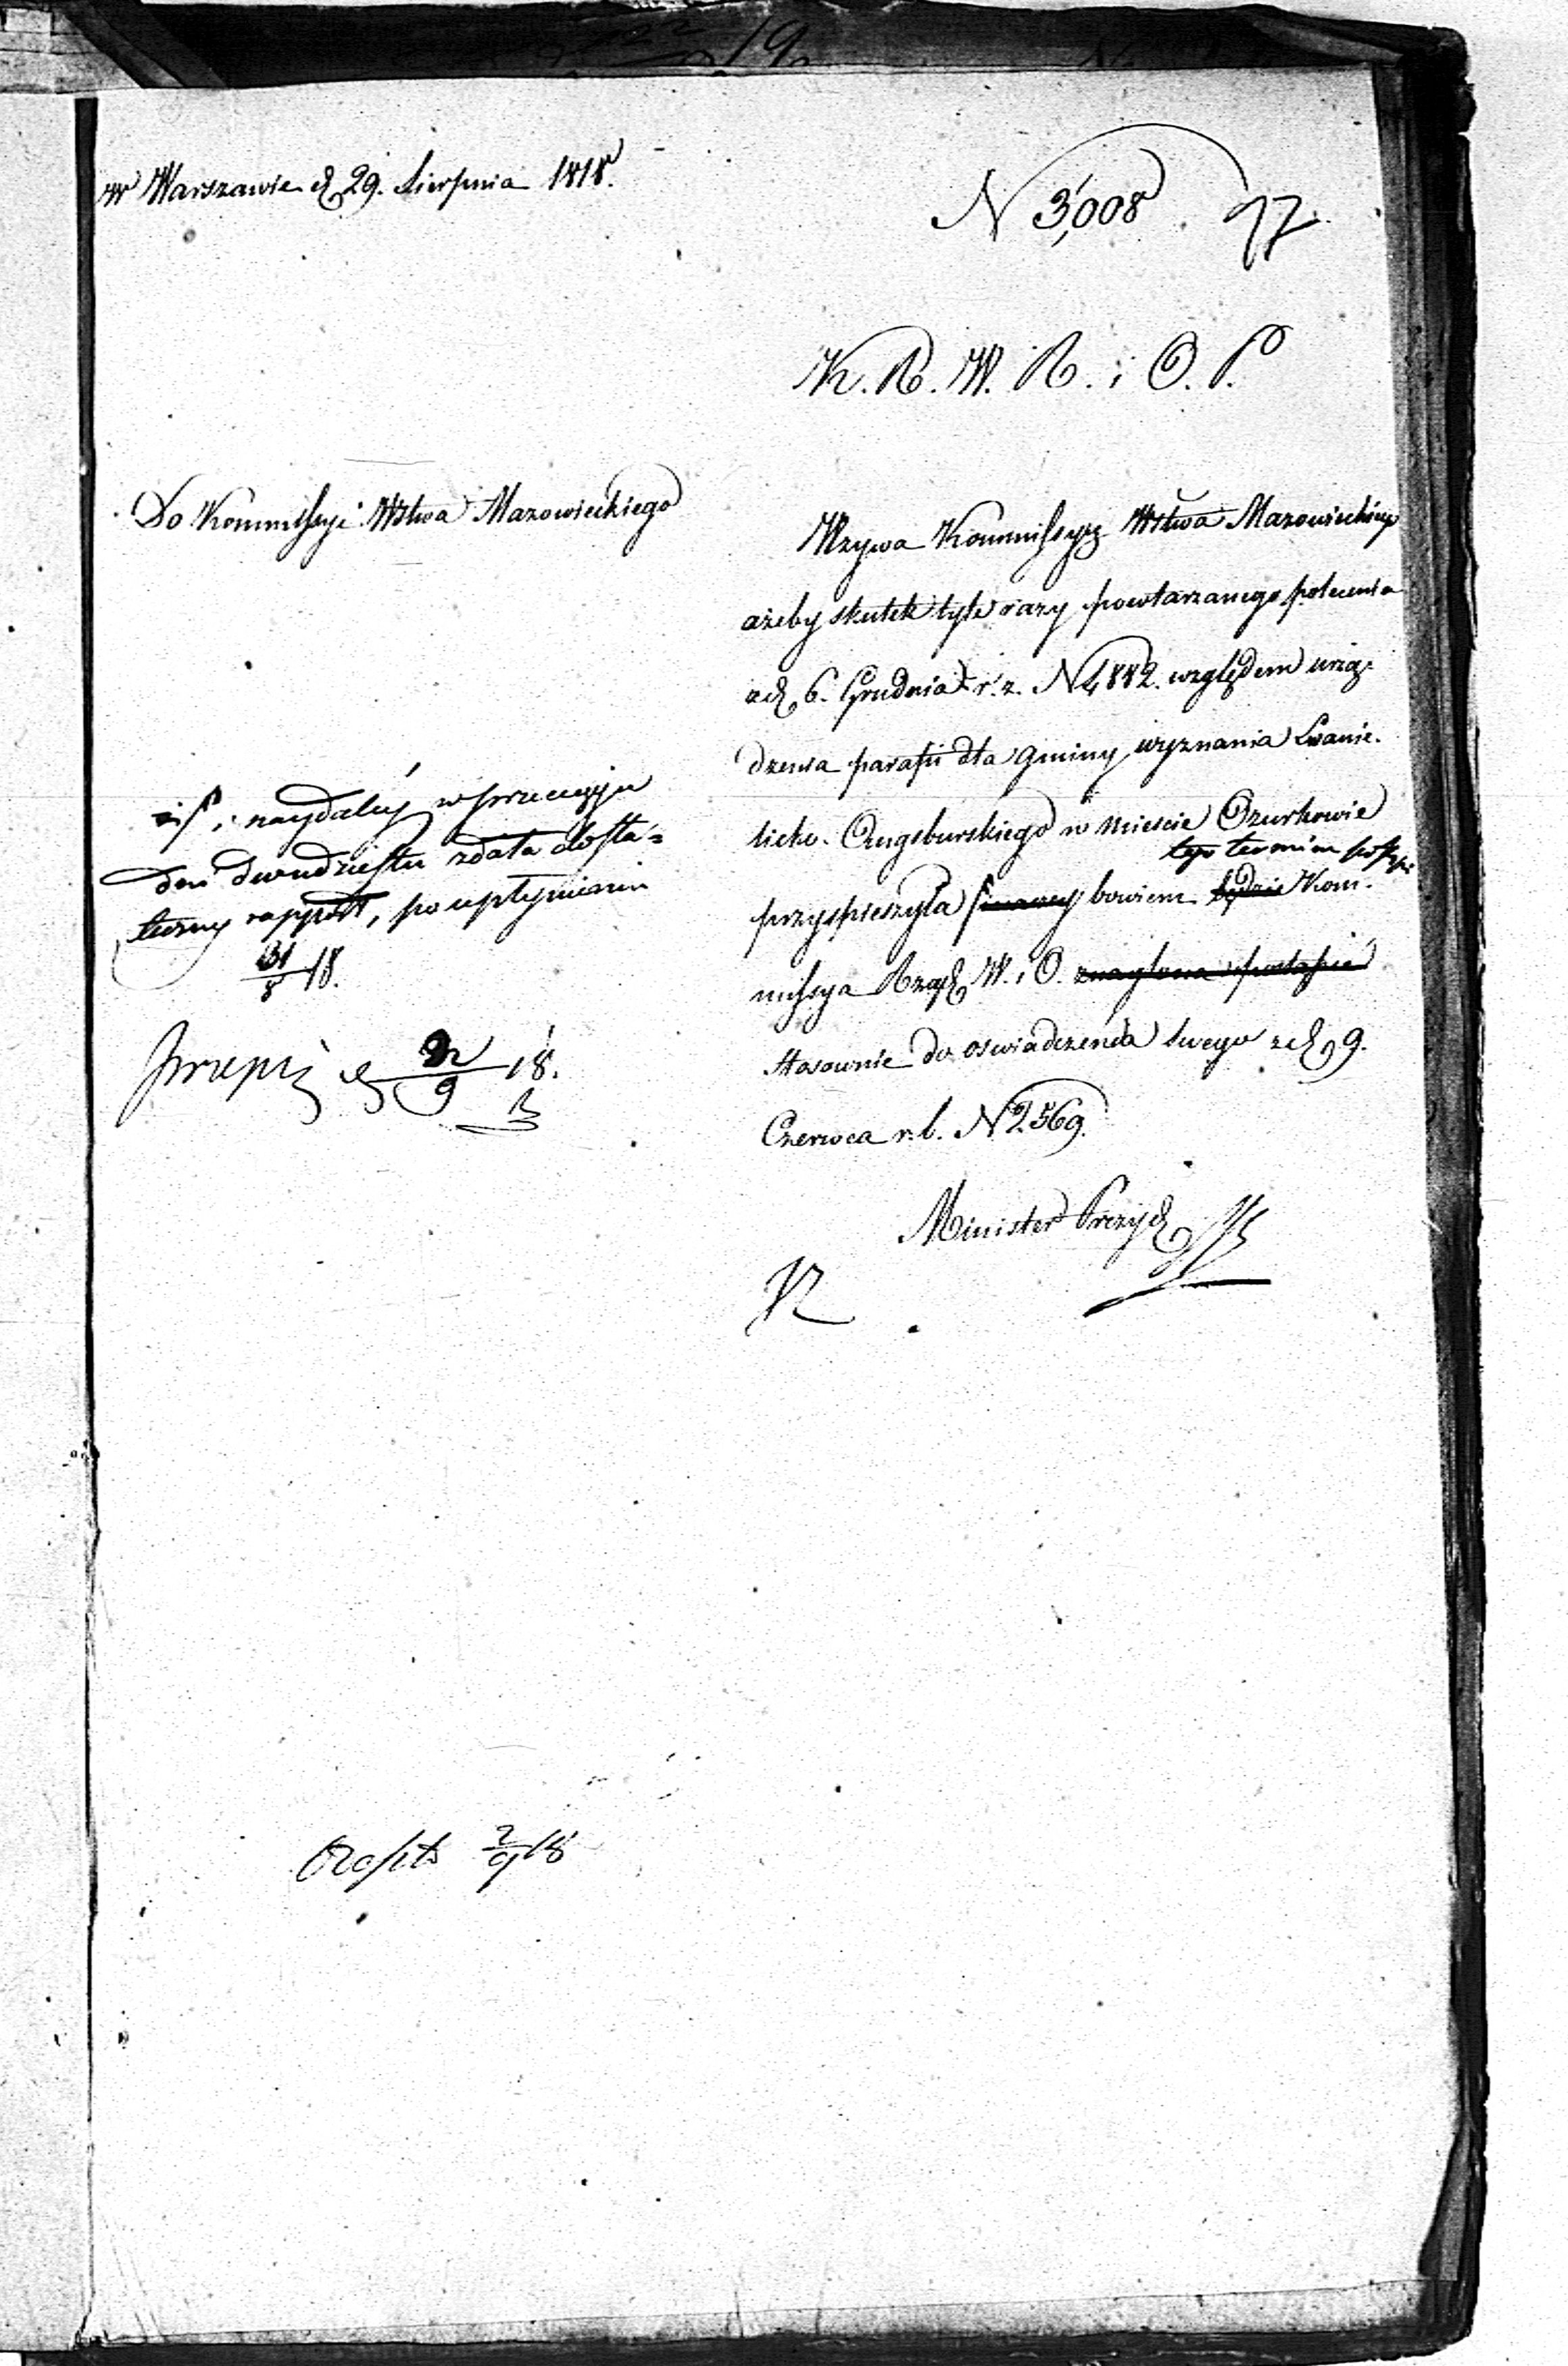 w Warszawie d. 29. Sierpnia 1818.
N 3,008 77.
K. R. W. R. i O. P.
Do Kommissyi Wztwa Mazowieckiego
Wzywa Kommissyą Wztwa Mazowieckiego
ażeby skutek tyle razy powtarzanego polecenia
z d. 6. Grudnia r. z. N 4882. względem urzą-
dzenia parafii dla gminy wyznania Ewanie-
licko-Augsburskiego w mieście Ozurkowie
tego terminu
przyspieszyła inaczey bowiem będzie Kom-
missya Rząd. W. i O. znaglona postąpić
stosownie do oświadczenia swego z d. 9.
Czerwca r. b. N 2569.
Minister Prezyd.
i naydaley w przeciągu
dni dwudziestu zdała dosta-
teczny rapport, po upłynieniu
31/8 18.
d. 2/9 18.
2/9 18